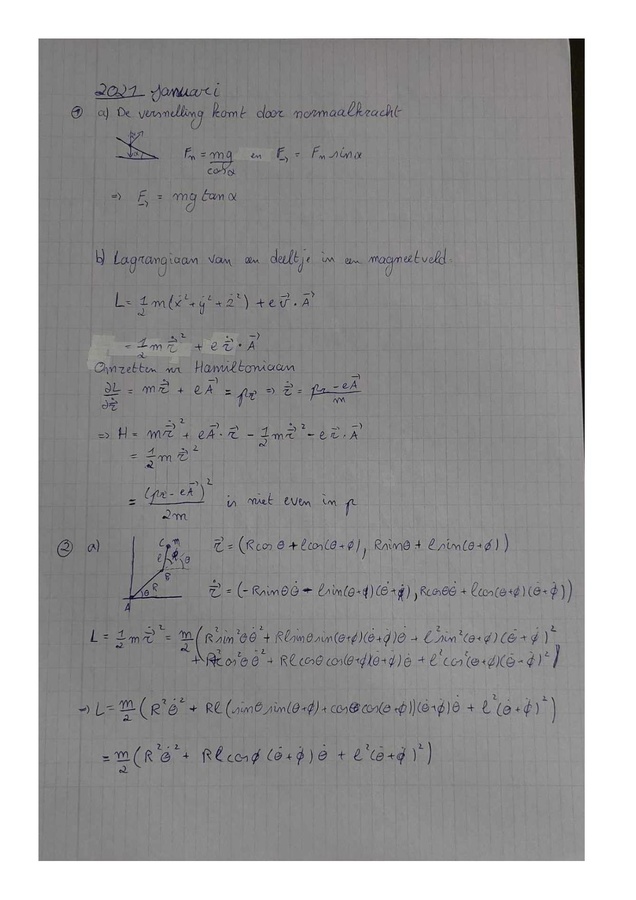 2021 Januari
① a) De versnelling komt door normaalkracht
Fₙ = mg/cos α en F→ = Fₙ sin α
⇒ F→ = mg tan α
b) Lagrangiaan van een deeltje in een magneetveld.
L = 1/2 m(ẋ² + ẏ² + ż²) + e v⃗ · A⃗
= 1/2 m ṙ⃗² + e ṙ⃗ · A⃗
Omzetten nr Hamiltoniaan
∂L/∂ṙ⃗ = m ṙ⃗ + e A⃗ = pr ⇒ ṙ⃗ = (pr - eA⃗)/m
⇒ H = m ṙ⃗² + e A⃗ · ṙ⃗ - 1/2 m ṙ⃗² - e ṙ⃗ · A⃗
= 1/2 m ṙ⃗²
= (pr - eA⃗)²/2m is niet even in p
② a)
C m
l ϕ θ
B
R
θ
A
r⃗ = (R cos θ + l cos(θ+ϕ), R sin θ + l sin(θ+ϕ))
ṙ⃗ = (-R sin θ θ̇ - l sin(θ+ϕ)(θ̇+ϕ̇), R cos θ θ̇ + l cos(θ+ϕ)(θ̇+ϕ̇))
L = 1/2 m ṙ⃗² = m/2 (R² sin² θ θ̇² + R l sin θ sin(θ+ϕ)(θ̇+ϕ̇) θ̇ + l² sin²(θ+ϕ)(θ̇+ϕ̇)²
+ R² cos² θ θ̇² + R l cos θ cos(θ+ϕ)(θ̇+ϕ̇) θ̇ + l² cos²(θ+ϕ)(θ̇+ϕ̇)²)
→ L = m/2 (R² θ̇² + R l (sin θ sin(θ+ϕ) + cos θ cos(θ+ϕ))(θ̇+ϕ̇) θ̇ + l² (θ̇+ϕ̇)²)
= m/2 (R² θ̇² + R l cos ϕ (θ̇+ϕ̇) θ̇ + l² (θ̇+ϕ̇)²)